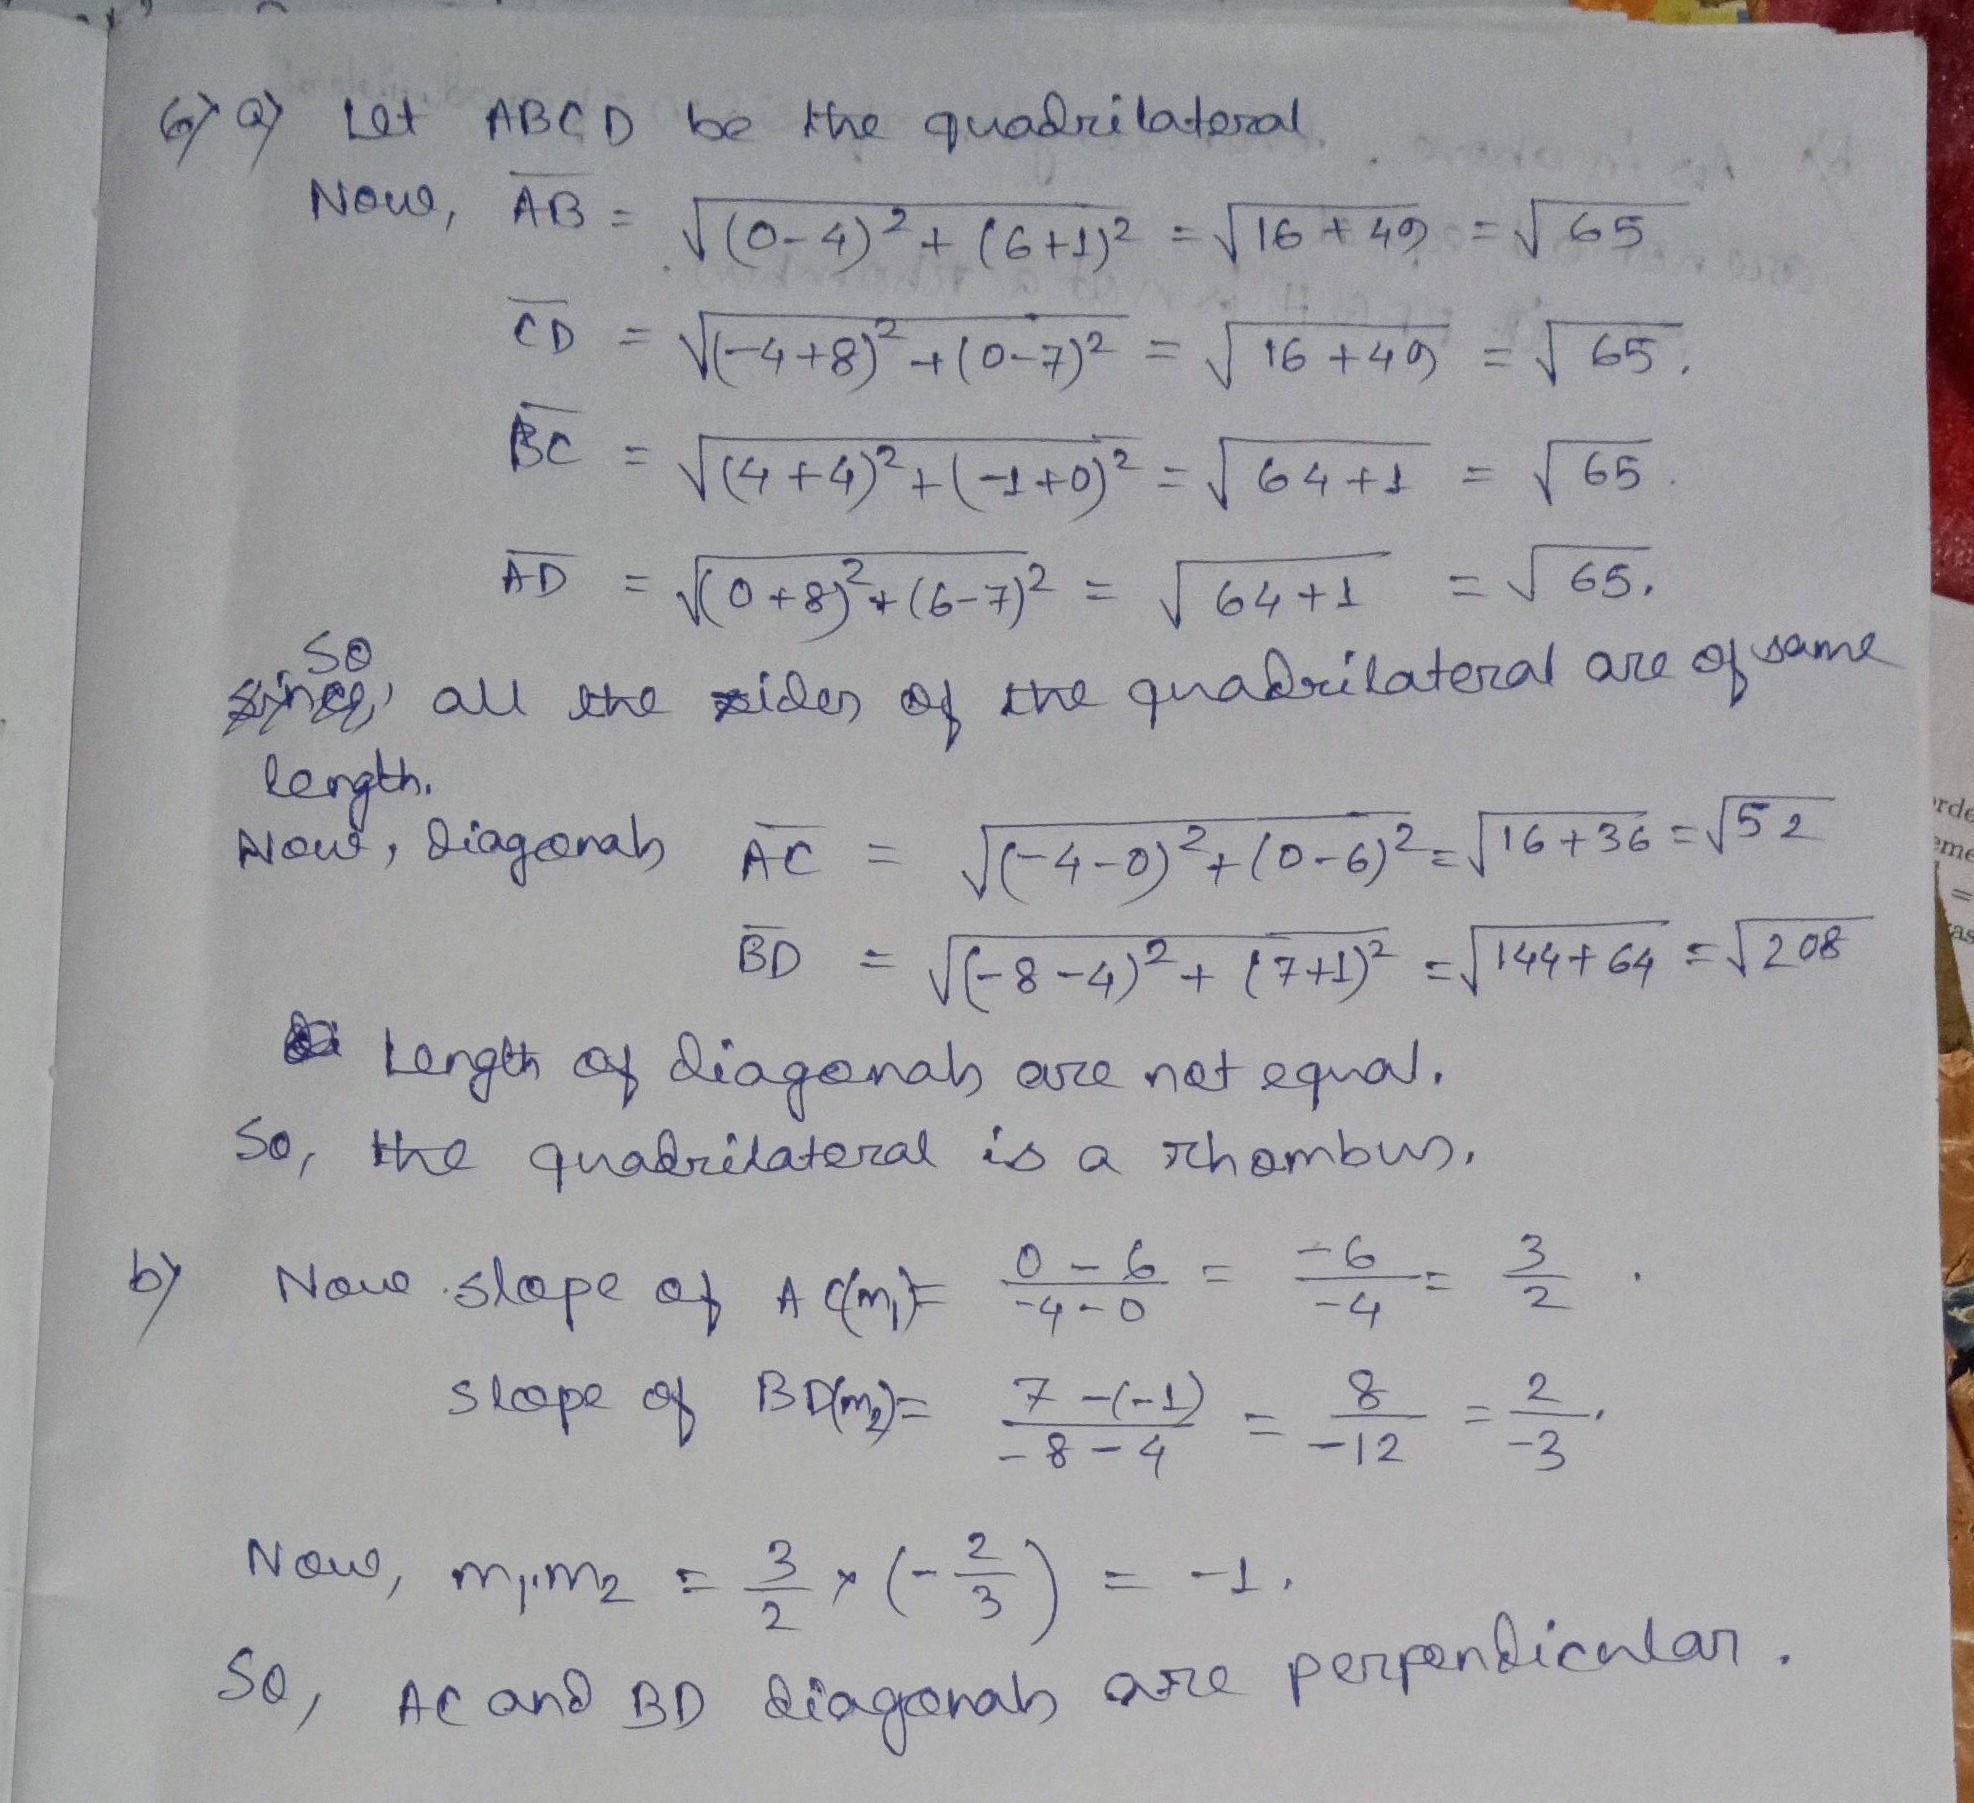 6) a) Let ABCD be the quadrilateral
Now, AB = √(0-4)² + (6+1)² = √16 + 49 = √65
CD = √(-4+8)² + (0-7)² = √16 + 49 = √65.
BC = √(4+4)² + (-1+0)² = √64+1 = √65.
AD = √(0+8)² + (6-7)² = √64+1 = √65.
So, all the sides of the quadrilateral are of same
length.
Now, diagonals AC = √(-4-0)² + (0-6)² = √16+36 = √52
BD = √(-8-4)² + (7+1)² = √144+64 = √208
Length of diagonals are not equal.
So, the quadrilateral is a rhombus.
b) Now slope of AC(m₁) = 0-6/-4-0 = -6/-4 = 3/2.
slope of BD(m₂) = 7-(-1)/-8-4 = 8/-12 = 2/-3.
Now, m₁.m₂ = 3/2 × (-2/3) = -1.
So, AC and BD diagonals are perpendicular.
orde
eme
=
as